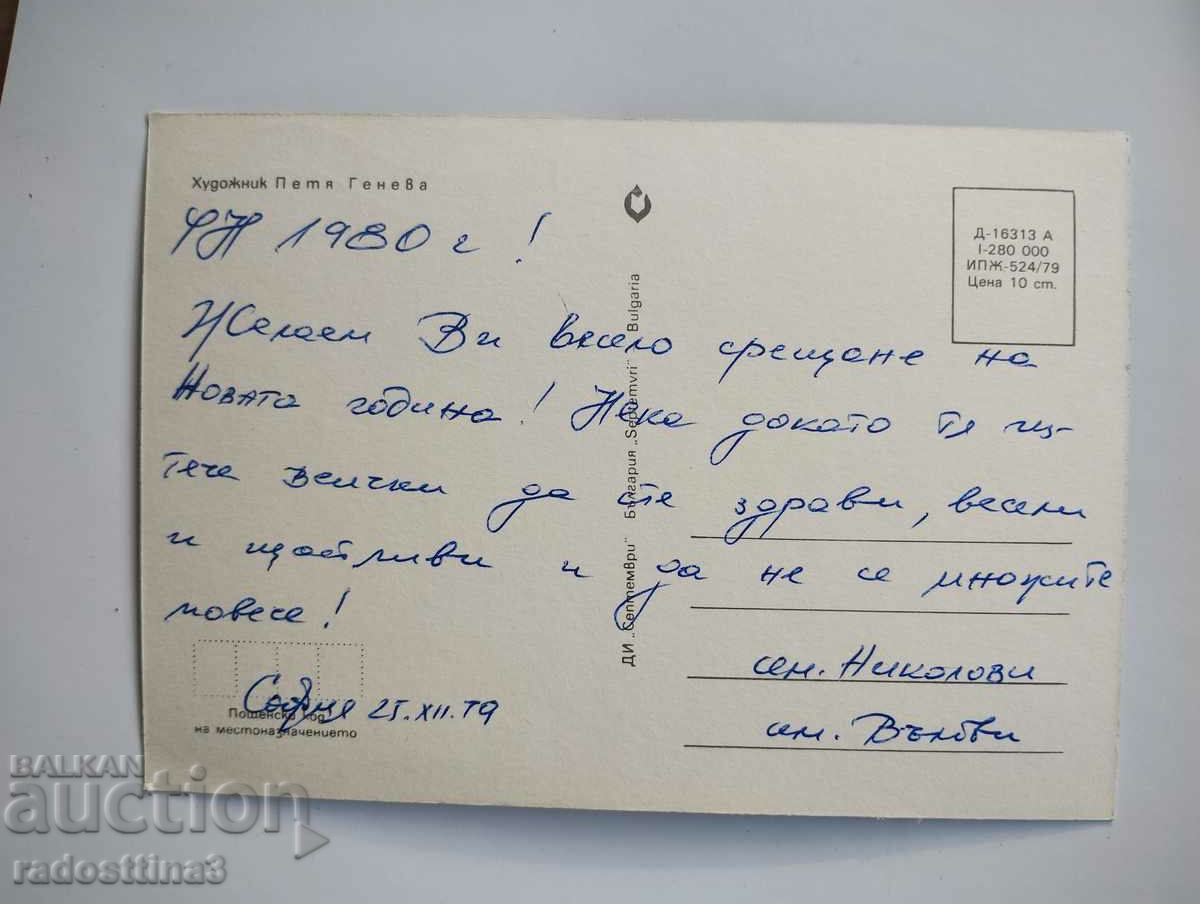 Художник Петя Генева
ЧНГ 1980 г!
Желаем Ви весело срещане на
Новата година! Нека докато тя из-
тече всички да сте здрави, весели
и щастливи и да не се множите
повече!
София 25.XII.79
Пощенски код
на местоназначението
сем. Николови
сем. Вълови
Д-16313 А
I-280 000
ИПЖ-524/79
Цена 10 ст.
ДИ „Септември" България „Septemvri" Bulgaria
BALKAN
auction
radosttina3